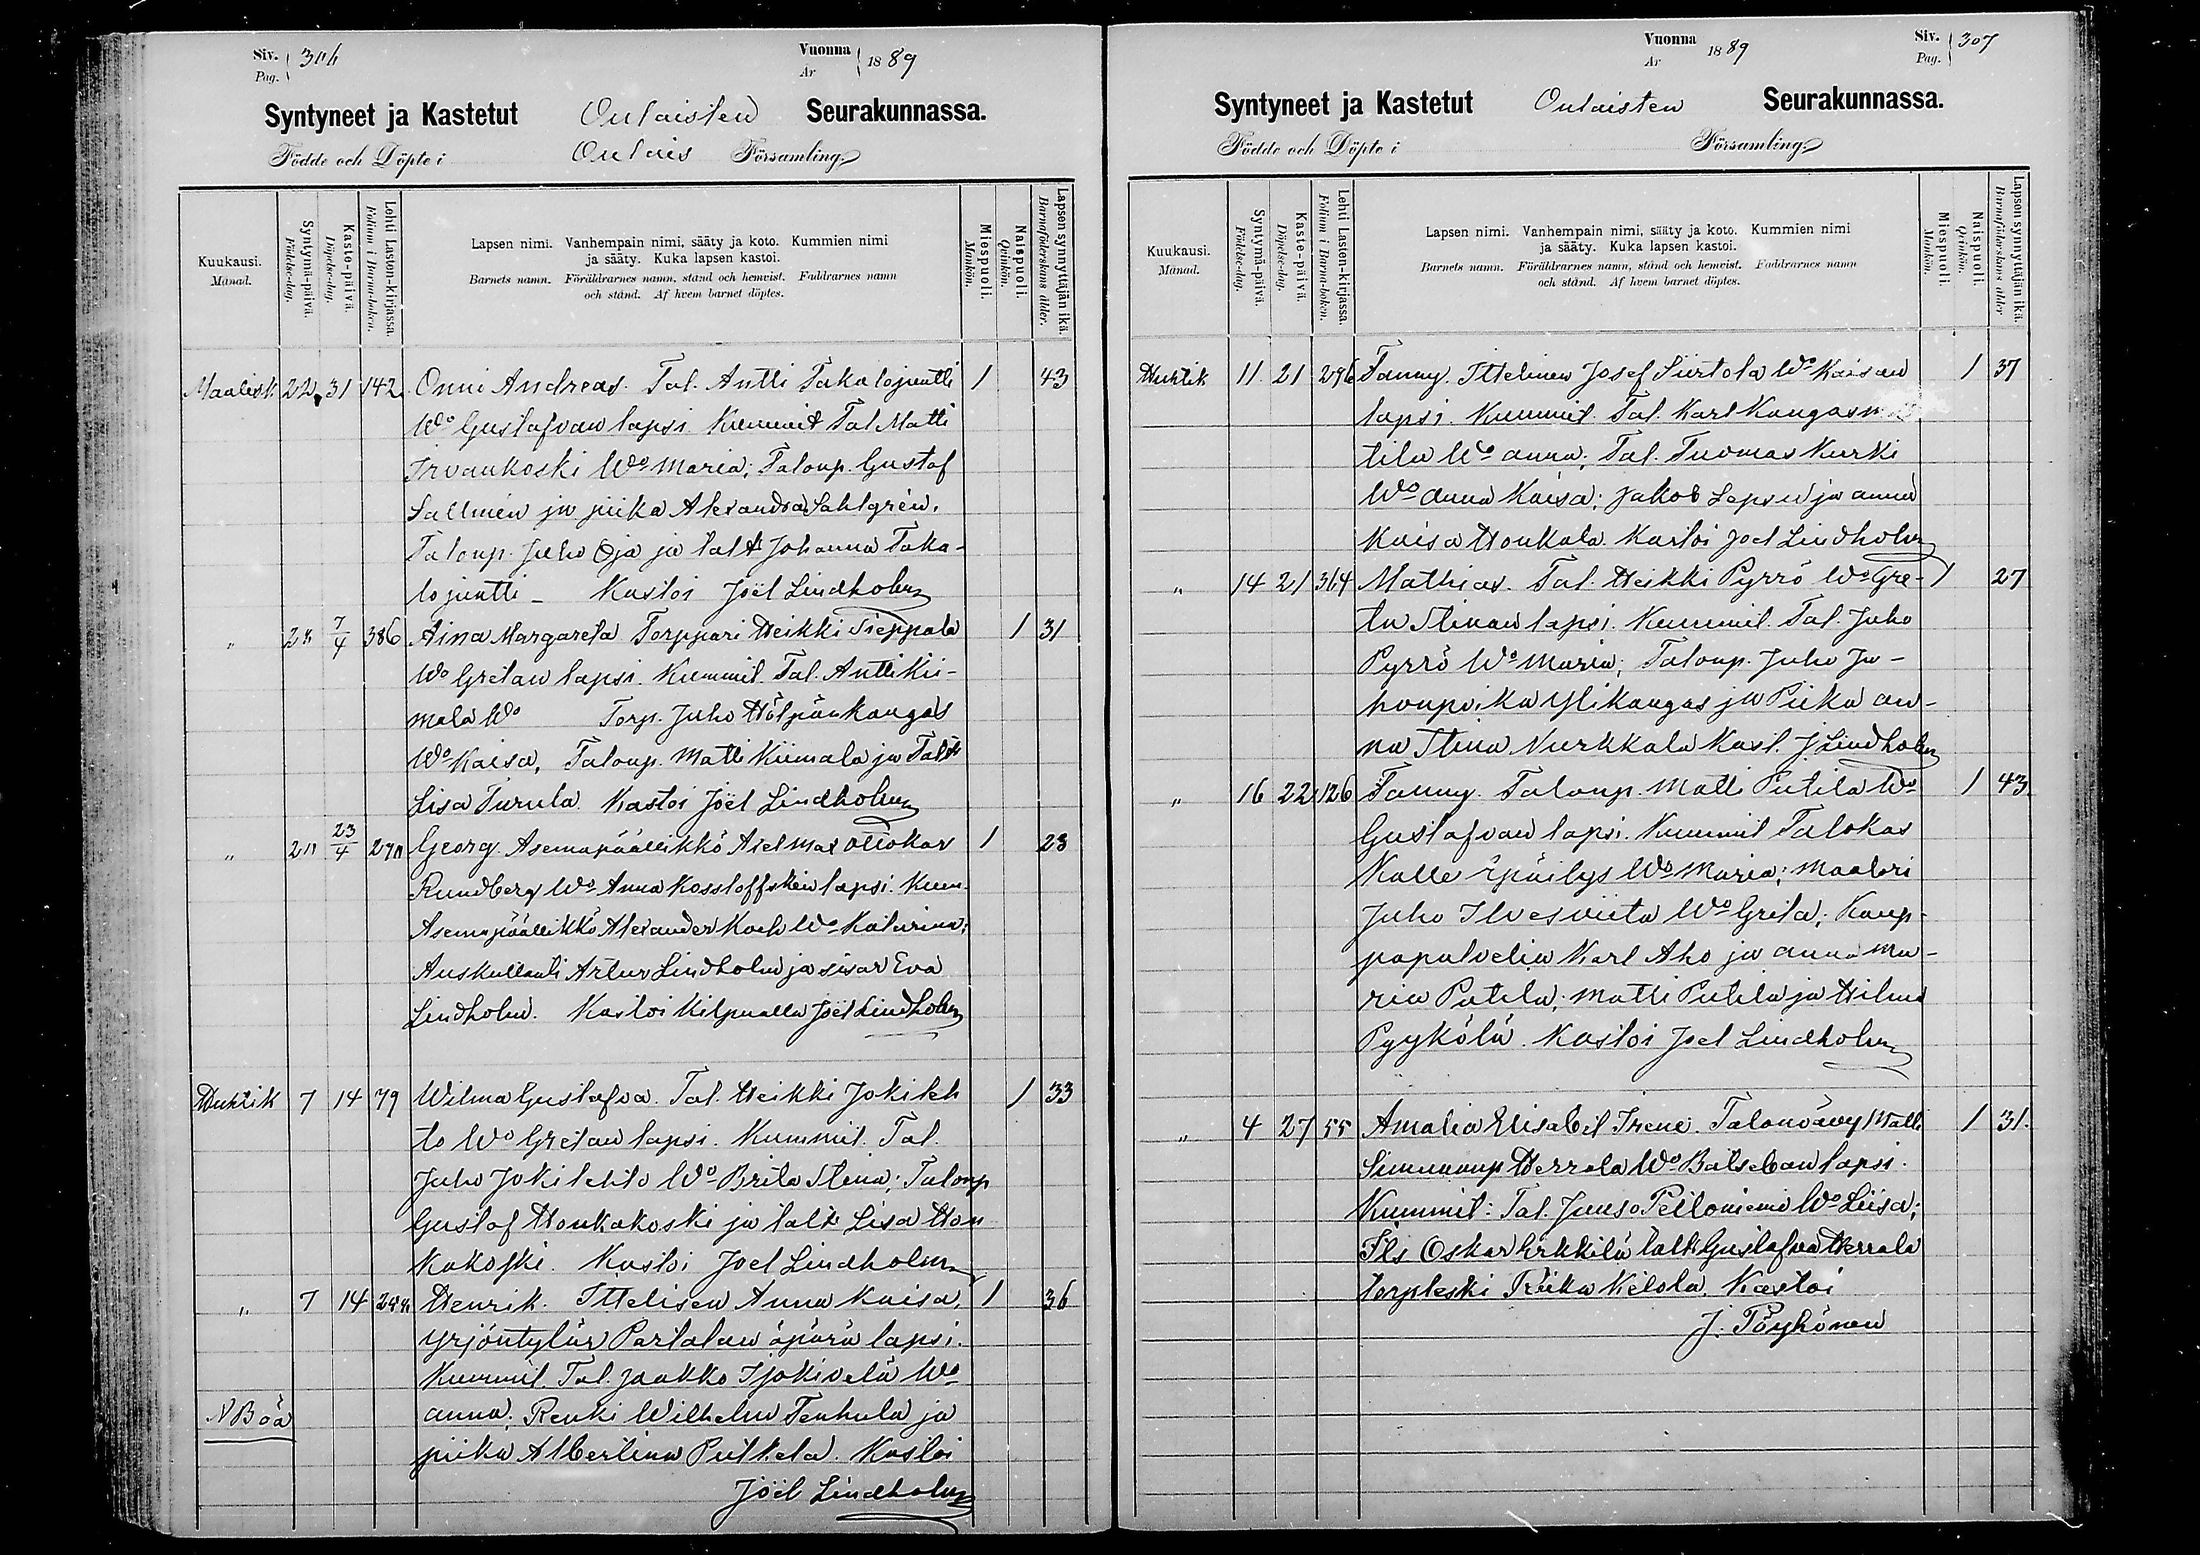 Siv. Pag. 306
Vuonna År 1889
Syntyneet ja Kastetut Oulaisten Seurakunnassa.
Födde och Döpte i Oulais Församling
Kuukausi. Månad.
Syntymä-päivä. Födelse-dag.
Kasto-päivä. Döpelse-dag.
Lehti Lasten-kirjassa. Folium i Barna-boken.
Lapsen nimi. Vanhempain nimi, sääty ja koto. Kummien nimi
ja sääty. Kuka lapsen kastoi.
Barnets namn. Föräldrarnes namn, stånd och hemvist. Faddrarnes namn
och stånd. Af hvem barnet döptes.
Miespuoli. Mankön.
Naispuoli. Qvinkön.
Lapsen synnyttäjän ikä. Barnaföderskans ålder.
Maalisk 22 31 142 Onni Andreas. Tal. Antti Takalojuntti 1 43
Wo Gustafvan lapsi Kummit Tal Matti
Irvankoski Wo Maria; Taloup. Gustaf
Sallmén ja piika Alexandra Sahlgrén,
Taloup. Juho Oja ja taltt Johanna Taka-
lojuntti - Kastoi Joël Lindholm
" 28 7/4 386 Aina Margareta Torppari Heikki Sieppala 1 31
Wo Gretan lapsi Kummit Tal. Antti Kii-
mala Wo Torp. Juho Hölpänkangas
Wo Kaisa, Taloup. Matti Kiimala ja Taltt
Lisa Turula Kastoi Joël Lindholm
" 23/4 Georg. Asemapäällikkö Axel Max Ottokar 1 28
Rundberg Wo Anna Kossloffskin lapsi. Kum.
Asemapäällikkö Alexander Koch Wo Katarina;
Auskultanti Artur Lindholm ja sisar Eva
Lindholm. Kastoi Kilpualla Joël Lindholm
Huhtik 7 14 79 Wilma Gustafva. Tal. Heikki Jokileh 1 33
to Wo Gretan lapsi. Kummit. Tal.
Juho Jokilehto Wo Brita Stina; Taloup
Gustaf Honkakoski ja taltt Lisa Hon
kakoski. Kastoi Joel Lindholm
" 7 14 Henrik. Ittelisen Anna Kaisa, 1 36
Yrjöntytär Partalan äpärä lapsi.
Kummit. Tal. Jaakko Ijokivelä Wo
NBöä anna; Renki Wilhelm Tenhula ja
piika Albertina Putkela. Kastoi
Joël Lindholm
Vuonna År 1889
Siv. Pag. 307
Syntyneet ja Kastetut Oulaisten Seurakunnassa.
Födde och Döpte i Församling
Kuukausi. Månad.
Syntymä-päivä. Födelse-dag.
Kaste-päivä. Döpelse-dag.
Lehti Lasten-kirjassa. Folium i Barna-boken.
Lapsen nimi. Vanhempain nimi, sääty ja koto. Kummien nimi
ja sääty. Kuka lapsen kastoi.
Barnets namn. Föräldrarnes namn, stånd och hemvist. Faddrarnes namn
och stånd. Af hvem barnet döptes.
Miespuoli. Mankön.
Naispuoli. Qvinkön.
Lapsen synnyttäjän ikä. Barnaföderskans ålder
Huhtik 11 21 296 Fanny. Ittelinen Josef Siirtola Wo Kaisan 1 37
lapsi. Kummit. Tal. Karl
tila Wo anna; Tal. Tuomas Kurki
Wo Anna Kaisa; Jakob Lapsu ja anna
Kaisa Honkala. Kastoi Joel Lindholm
" 14 21 364 Mathias. Tal. Heikki Pyrrö Wo Gre- 1 27
ta Stinan lapsi. Kummit. Tal. Juho
Pyrrö Wo Maria; Taloup. Juho Ju-
honpoika Ylikangas ja Piika an-
na Stina Nurkkala Kast. J Lindholm
" 16 22 126 Fanny. Taloup. Matti Putila Wo 1 43
Gustafvan lapsi. Kummit Talokas
Kalle Epäilys Wo Maria; Maalari
Juho Ilvesviita Wo Greta; Kaup-
papalvelia Karl Aho ja anna Ma-
ria Putila; Matti Putila ja Hilma
Pyykölä. Kastoi Joel Lindholm
" 4 27 55 Amalia Elisabet Irene. Talonvävy Matti 1 31.
Simonp Herrala Wo Batseban lapsi.
Kummit: Tal. Juuso Peltoniemi Wo Liisa;
Its Oskar Erkkilä taltt Gustafva Herrala
torpleski Fiika Kelola. Kastoi
J. Pöyhönen